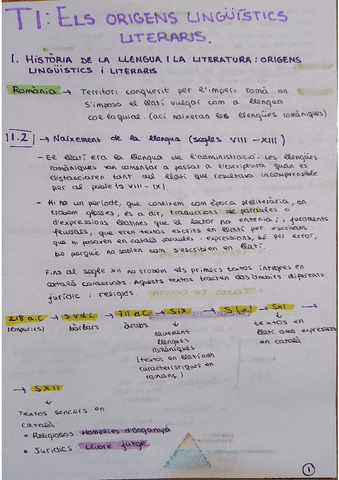 T1: ELS ORIGENS LINGÜÍSTICS
LITERARIS.
1. HISTÒRIA DE LA LLENGUA I LA LITERATURA: ORIGENS
LINGÜÍSTICS I LITERARIS
Romània → Territori conquerit per l'imperi romà on
s'imposa el llatí vulgar com a llengua
col·loquial. (ací naixeran les llengües romàniques)
1.2 → Naixement de la llengua (segles VIII - XIII)
- El llatí era la llengua de l'administració. Les llengües
romàniques van començar a passar a l'escriptura quan es
distanciaren tant del llatí que resultava incomprensible
per al poble (s VIII - IX)
- Hi ha un període, que coneixem com època preliterària, on
trobem glosses, és a dir, traduccions de paraules o
d'expressions llatines que el lector no entenia; i juraments
feudals, que eren textos escrits en llatí per escrivans
que hi posaven en català paraules i expressions, bé per error,
bé perquè no sabien com s'escribien en llatí.
Fins al segle XII no trobem els primers textos íntegres en
català conservats. Aquests textos tracten dos àmbits diferents:
jurídic i religiós.
218 a.C → S V d.C → 711 d.C → S IX → S X → S XI →
(empúries) bàrbars àrabs
naixement
llengües
romàniques
(textos en llatí amb
característiques en
romanç)
textos en
llatí amb expressions
en català
→ S XII
Textos sencers en
català
• Religiosos Homilies d'Organyà
• Jurídics Llibre jutge.
1